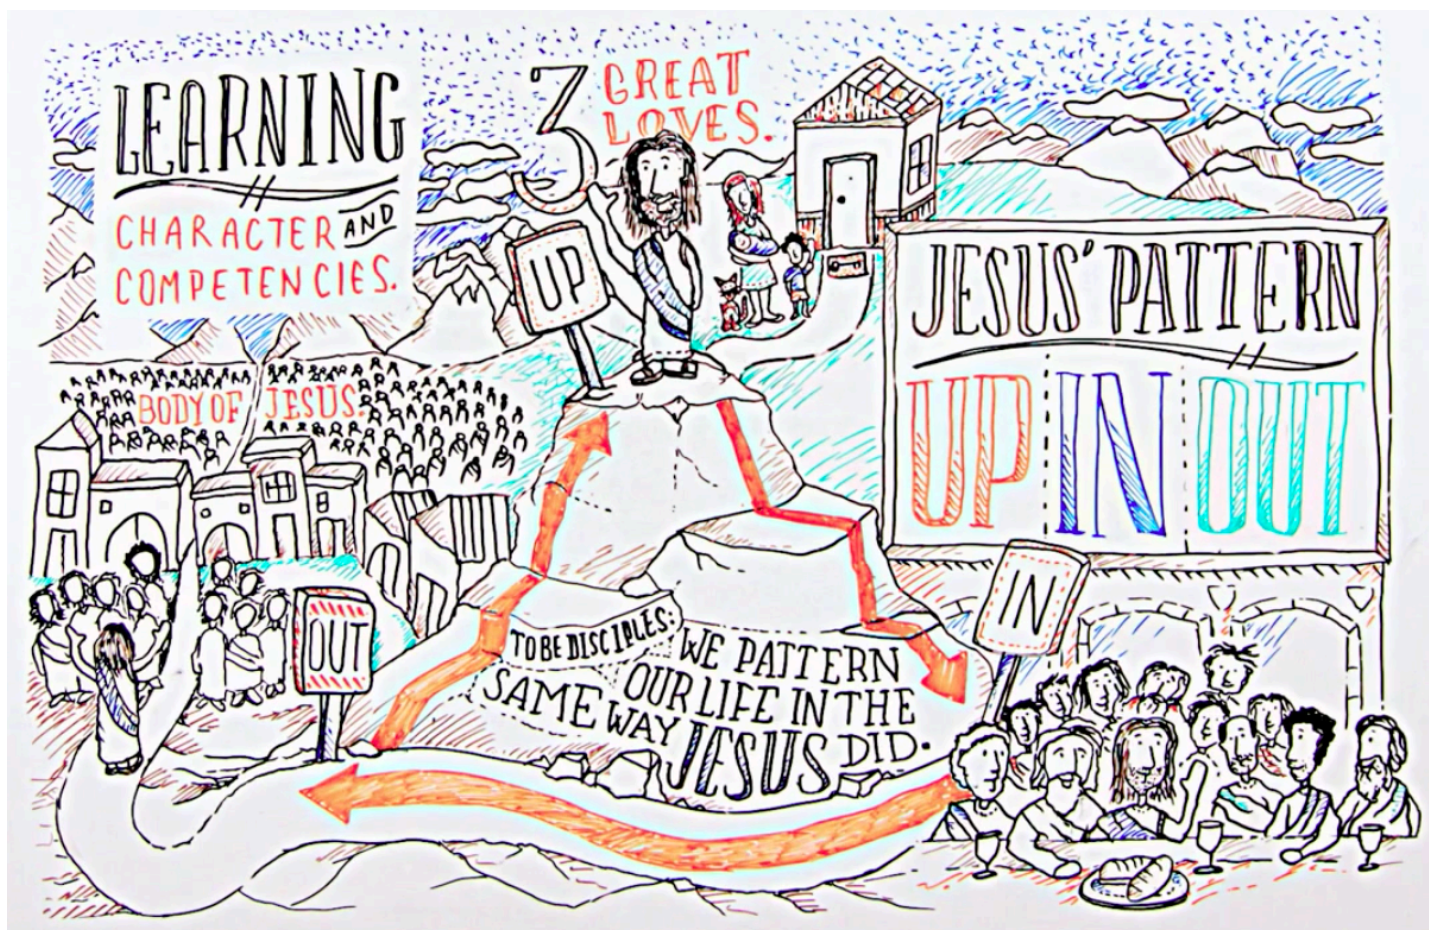 LEARNING
CHARACTER AND
COMPETENCIES.
3 GREAT
LOVES.
UP
JESUS' PATTERN
UP IN OUT
BODY OF JESUS.
OUT
IN
TO BE DISCIPLES:
WE PATTERN
OUR LIFE IN THE
SAME WAY JESUS DID.